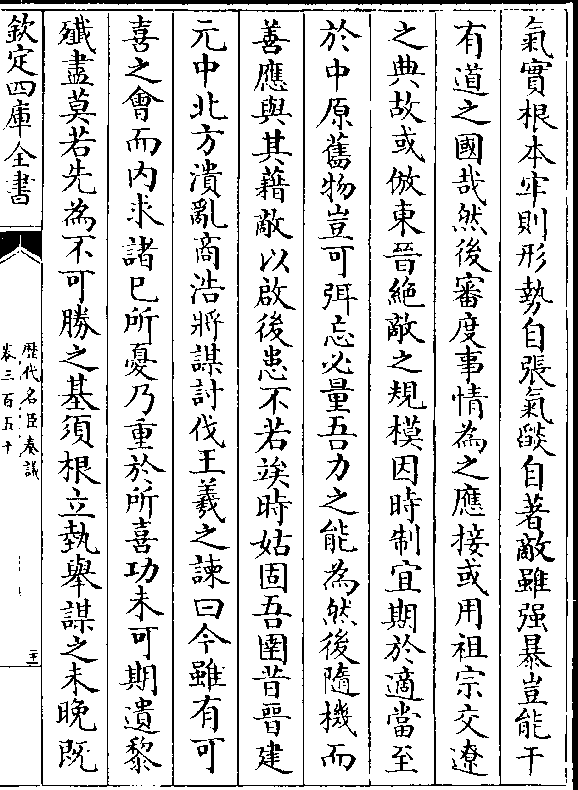 氣實根本牢則形勢自張氣燄自著敵雖强暴豈能干
有道之國哉然後審度事情為之應接或用祖宗交遼
之典故或倣東晉絶敵之規模因時制宜期於適當至
於中原舊物豈可弭忘必量吾力之能為然後隨機而
善應與其藉敵以啟後患不若竢時姑固吾圉昔晉建
元中北方潰亂商浩將謀討伐王羲之諫曰今雖有可
喜之會而内求諸已所憂乃重於所喜功未可期遺黎
殱盡莫若先為不可勝之基須根立埶舉謀之未晚既
欽定四庫全書
歴代名臣奏議
卷三百五十